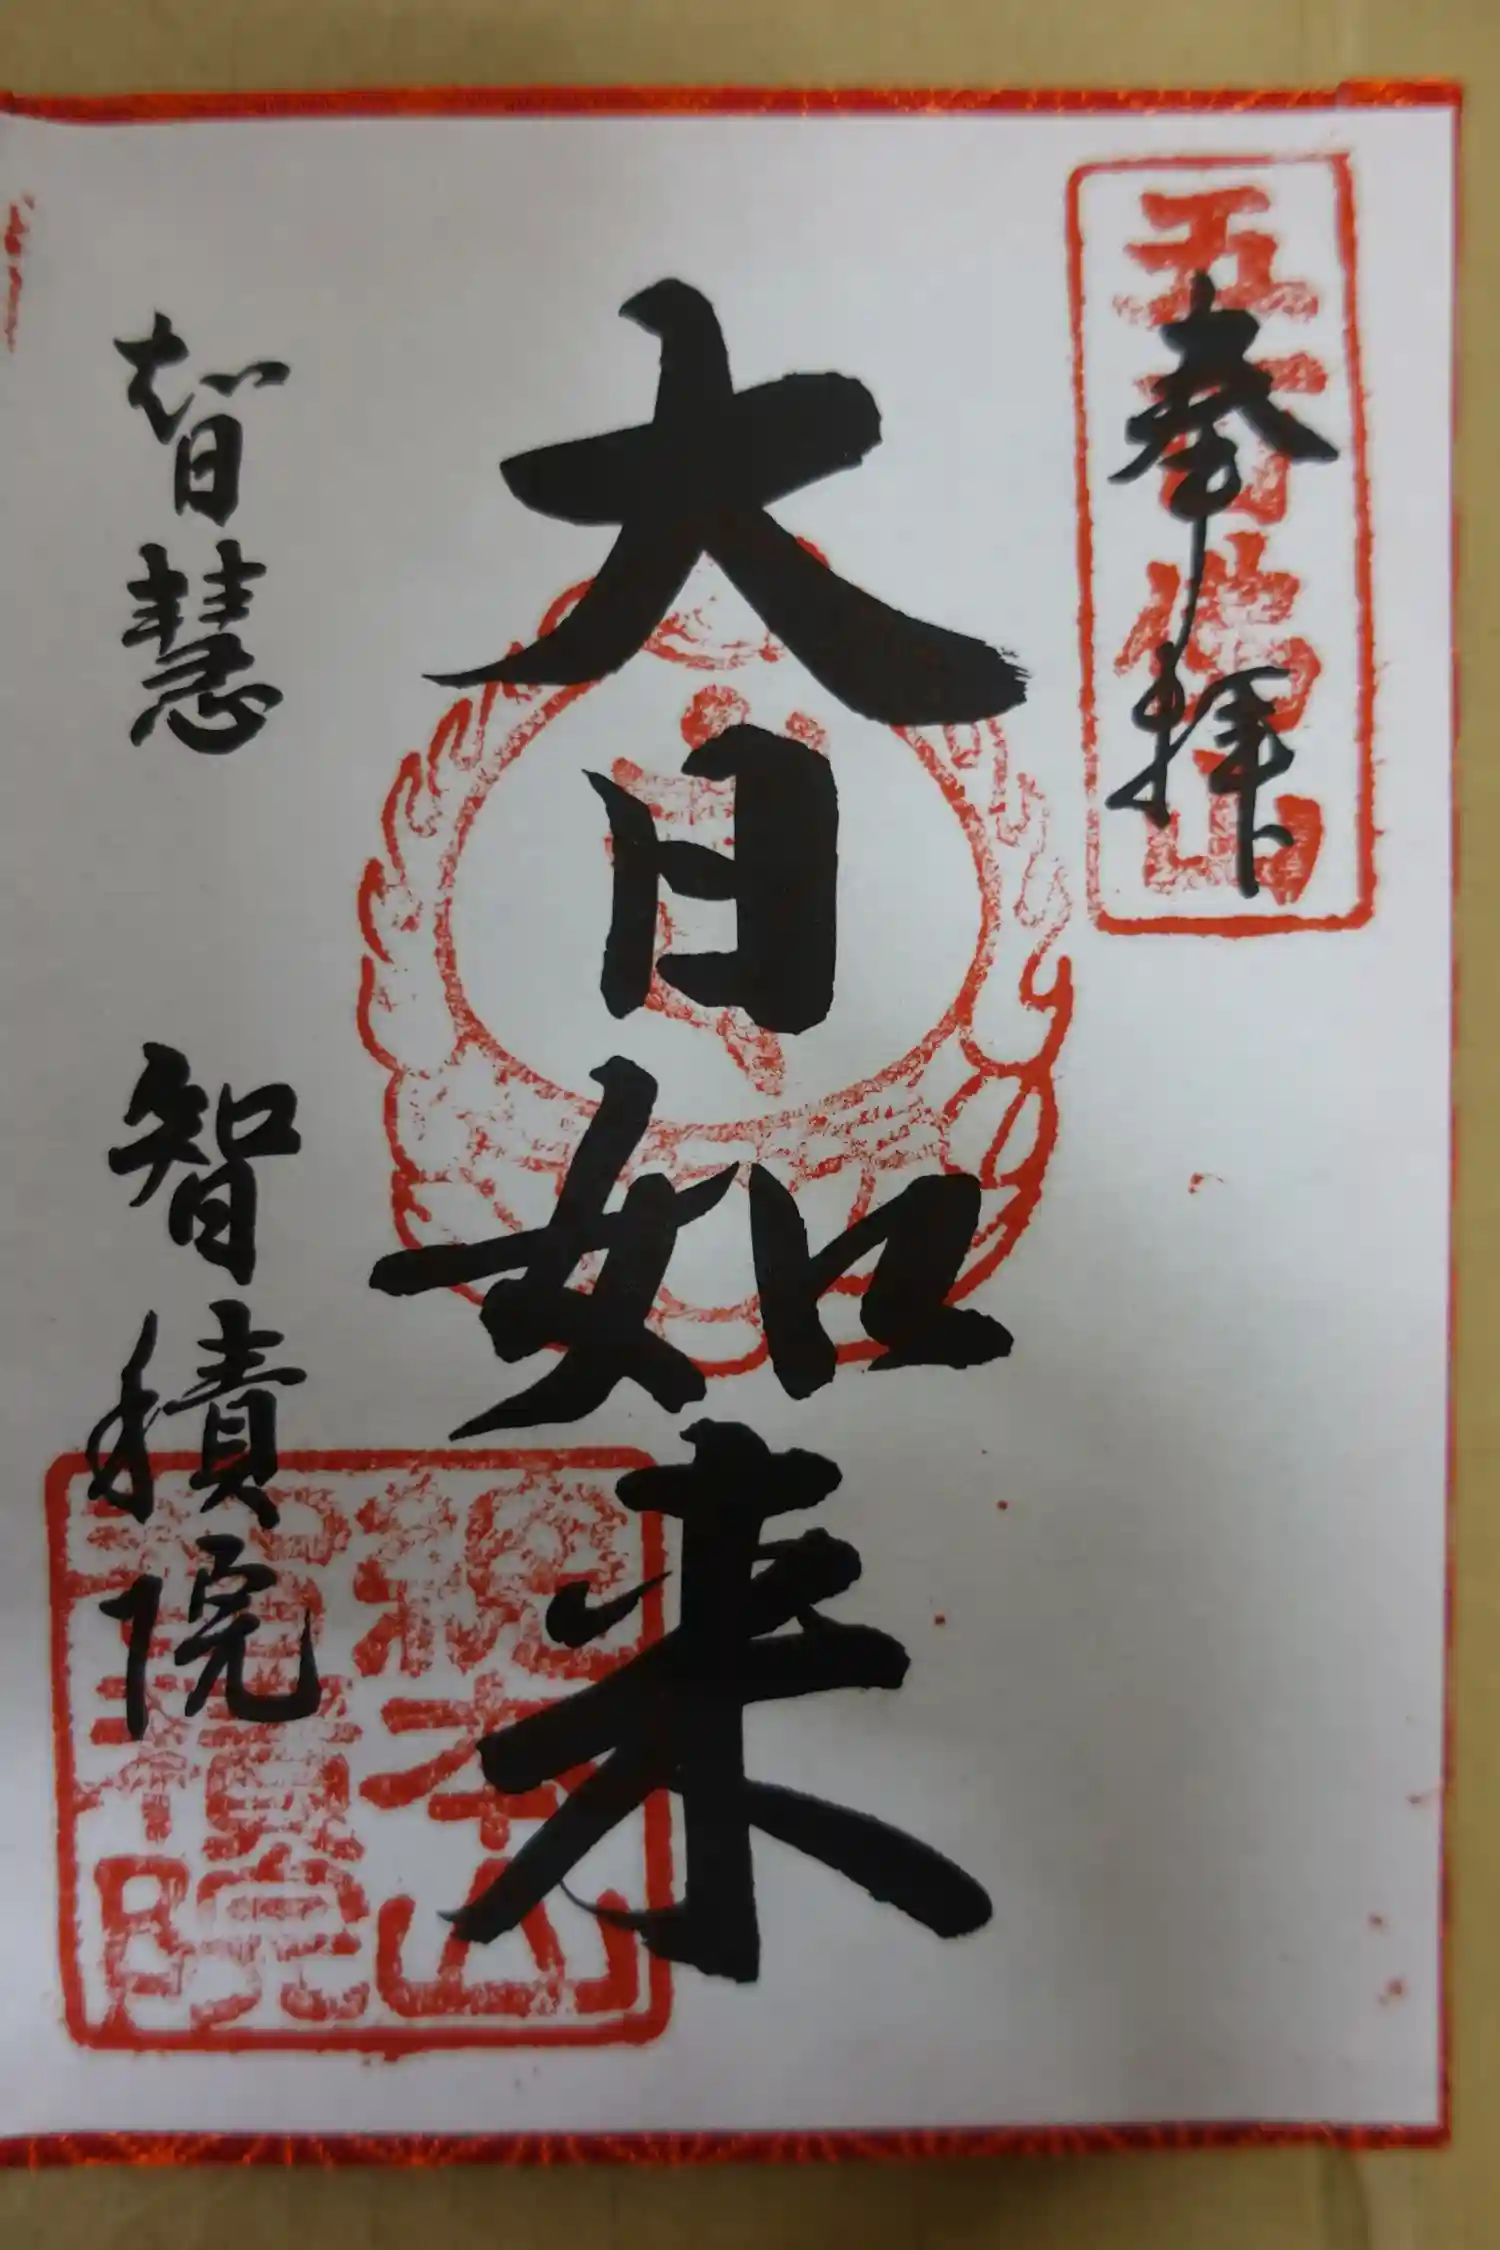 五百佛山
奉拝
大日如来
智慧 智積院
総本山
智積院